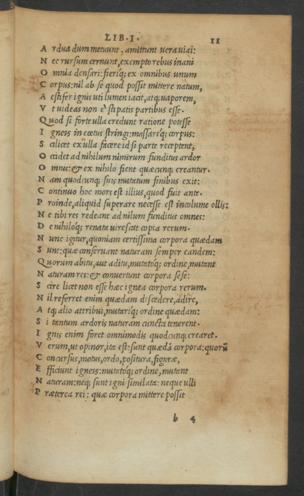 LIB·I·
11
A rdua dum metuunt, amittunt uera uiai:
N ec rursum cernunt, exempto rebus inani
O mnia densari: fieriq; ex omnibus unum
C orpus: nil ab se quod possit mittere natum,
A estifer ignis uti lumen iacit, atq; uaporem,
V t uideas non è stipatis partibus esse.
Quod si forte ulla credunt ratione potesse
I gneis in cœtus stringi: mossareq; corpus:
S cilicet ex ulla facere id si parte recepient,
O ccidet ad nihilum nimirum funditus ardor
O mnis: & ex nihilo fient quæcunq; creantur.
N am quodcunq; suis mutatum finibus exit:
C ontinuo hoc mors est illius, quod fuit ante.
P roinde, aliquid superare necesse est incolume ollis:
N e tibi res redeant ad nilum funditus omnes:
D e nihiloq; renata uirescat copia rerum.
N unc igitur, quoniam certissima corpora quædam
S unt: quæ conseruant naturam semper eandem:
Quorum abitu, aut aditu, mutatoq; ordine, mutant
N aturam res: & conuertunt corpora sese:
S cire licet non esse hæc ignea corpora rerum.
N il referret enim quædam discedere, adire,
A tq; alio attribui, mutariq; ordine quædam:
S i tantum ardoris naturam cuncta tenerent.
I gnis enim foret omnimodis quodcunq; crearet.
V erum, ut opinor, ita est: sunt quædā corpora: quorū
C oncursus, motus, ordo, positura, figuræ,
E fficiunt igneis: mutatoq; ordine, mutant
N aturam: neq; sunt igni similata: neque ulli
P ræterea rei: quæ corpora mittere possit
b 4